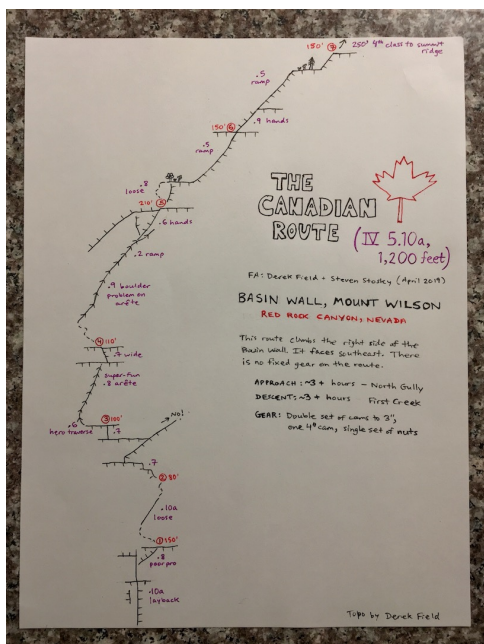 150' 7 250' 4th class to summit
ridge
.5
ramp
.9 hands
150' 6
.5
ramp
.8
loose
210' 5
.6 hands
.2 ramp
.9 boulder
problem on
arête
4 110'
.7 wide
super-fun
.8 arête
.6
hero traverse
3 100'
.7
NO!
.7
2 80'
.10a
loose
1 150'
.8
poor pro
.10a
layback
THE
CANADIAN
ROUTE
(IV 5.10a,
1,200 feet)
FA: Derek Field + Steven Stosky (April 2019)
BASIN WALL, MOUNT WILSON
RED ROCK CANYON, NEVADA
This route climbs the right side of the
Basin Wall. It faces southeast. There
is no fixed gear on the route.
APPROACH: ~3+ hours - North Gully
DESCENT: ~3+ hours First Creek
GEAR: Double set of cams to 3",
one 4" cam, single set of nuts
Topo by Derek Field